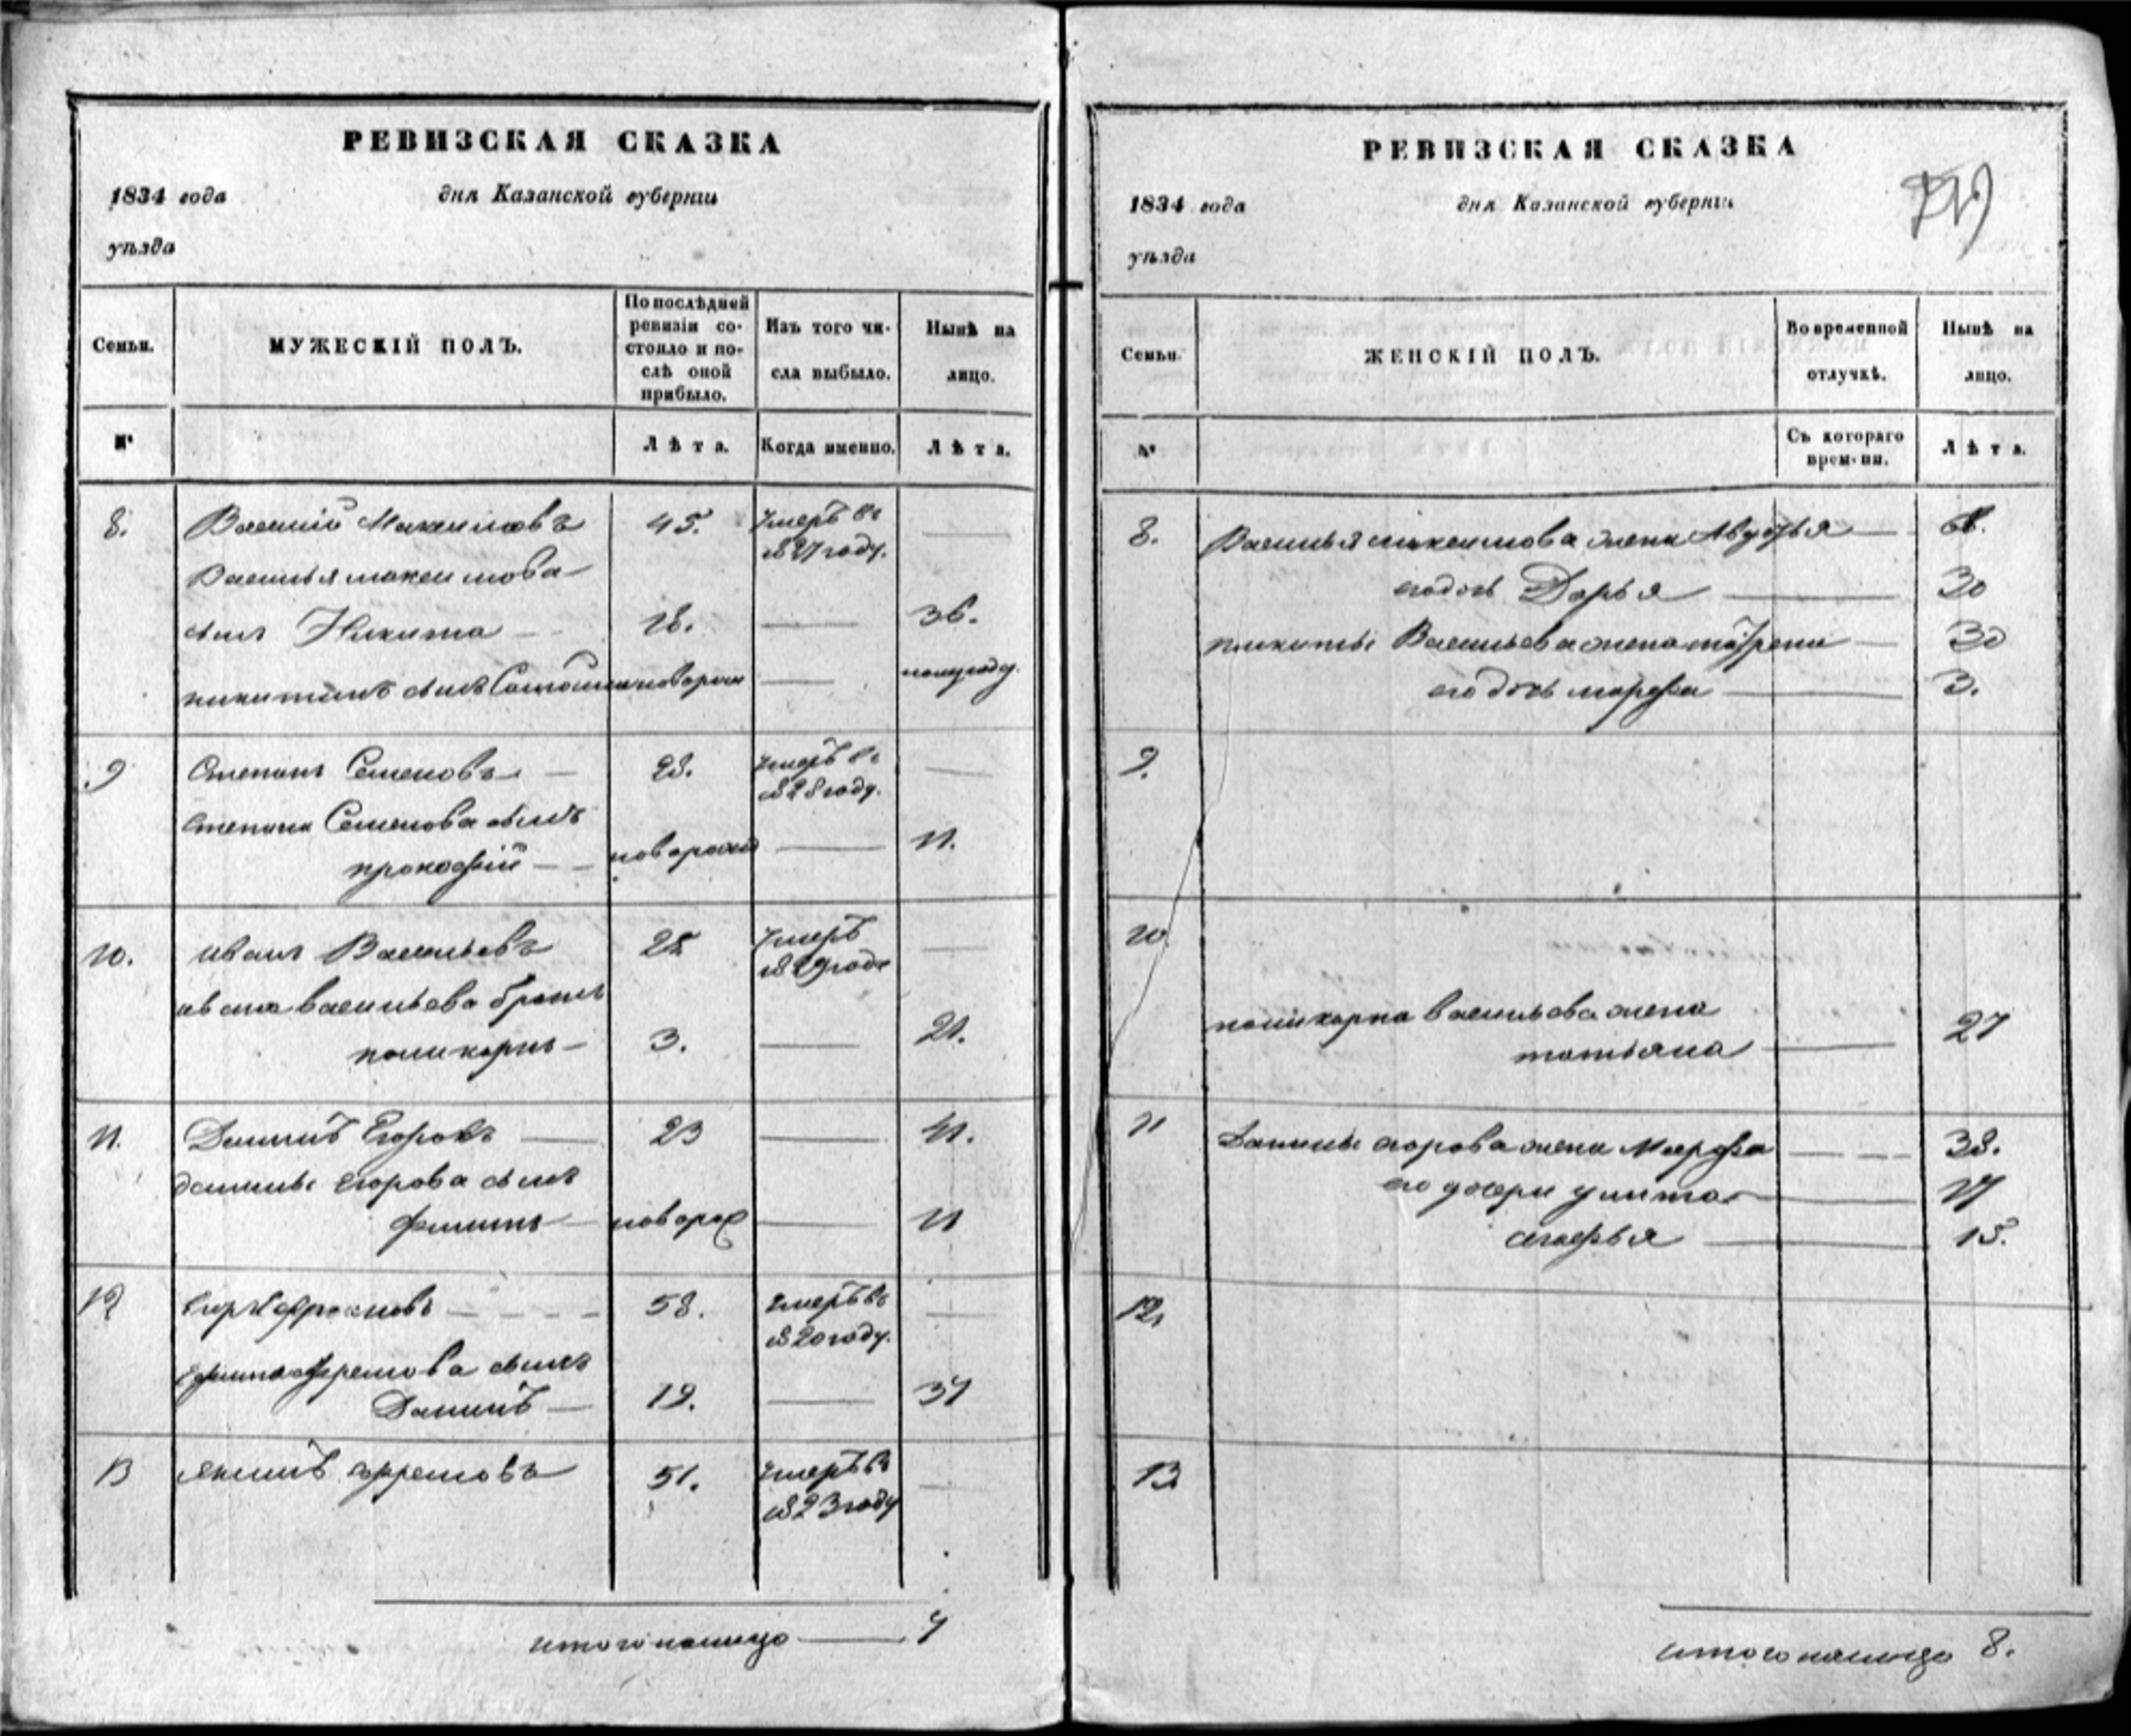 РЕВИЗСКАЯ СКАЗКА
1834 года дня Казанской губерніи
уѣзда
Семьи. МУЖЕСКІЙ ПОЛЪ. По послѣдней ревизіи состояло и послѣ оной прибыло. Изъ того числа выбыло. Нынѣ на лицо.
№ Лѣта. Когда именно. Лѣта.
8. Василій Максимовъ 45. Умеръ въ
1827 году.
Василья максимова
сынъ Никита 18. 36.
никитинъ сынъ новорож полугоду.
9 Степанъ Семеновъ 28. Умеръ въ
1828 году.
Степана Семенова сынъ
прокофій новорожд 11.
10. иванъ Васильевъ 25 Умеръ
1829 годе
ивана васильева братъ
поликарпъ 3. 21.
11. Данилъ Егоровъ 23 41.
данилы Егорова сынъ
филипъ новорож 11
12 58. Умеръ въ
1820 году.
сынъ
Данилъ 19. 37
13 Якимъ ефремовъ 51. Умеръ въ
1823 году
итого налицо 7
РЕВИЗСКАЯ СКАЗКА
1834 года дня Казанской губерніи
уѣзда
Семьи. ЖЕНСКІЙ ПОЛЪ. Во временной отлучкѣ. Нынѣ на лицо.
№ Съ котораго времени. Лѣта.
8. Василья максимова жена Авдотья
его дочь Дарья 30
никиты Васильева жена матрена 30
его дочь марфа 3.
9.
10
поликарпа васильева жена
татьяна 27
11 Данилы егорова жена Марфа 38.
его дочери улита 17
агафья 15.
12,
13
итого налицо 8.